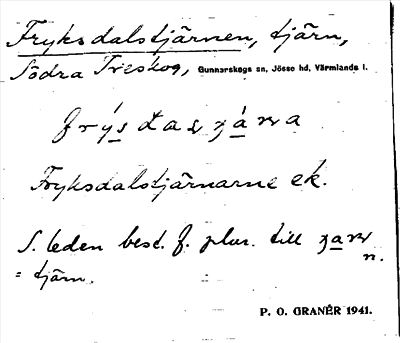 Fryksdalstjärnen, tjärn,
Södra Treskog, Gunnarskogs sn, Jösse hd, Värmlands l.
Fryksdalstjärnarne ek.
S. leden best. f. plur. till
= tjärn.
P. O. GRANÉR 1941.